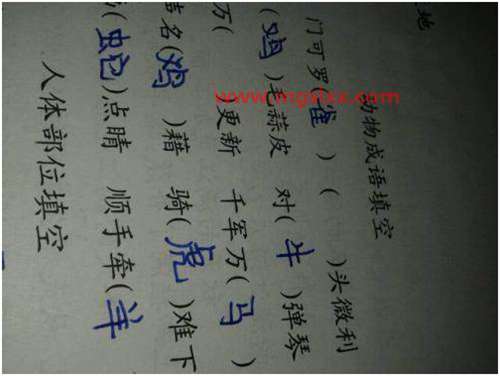 地
动物成语填空
门可罗雀 ) ( )头微利
(鸡)毛蒜皮 对(牛)弹琴
万( 更新 千军万(马)
名(鸡)籍 骑(虎)难下
(蛇)点睛 顺手牵(羊
人体部位填空